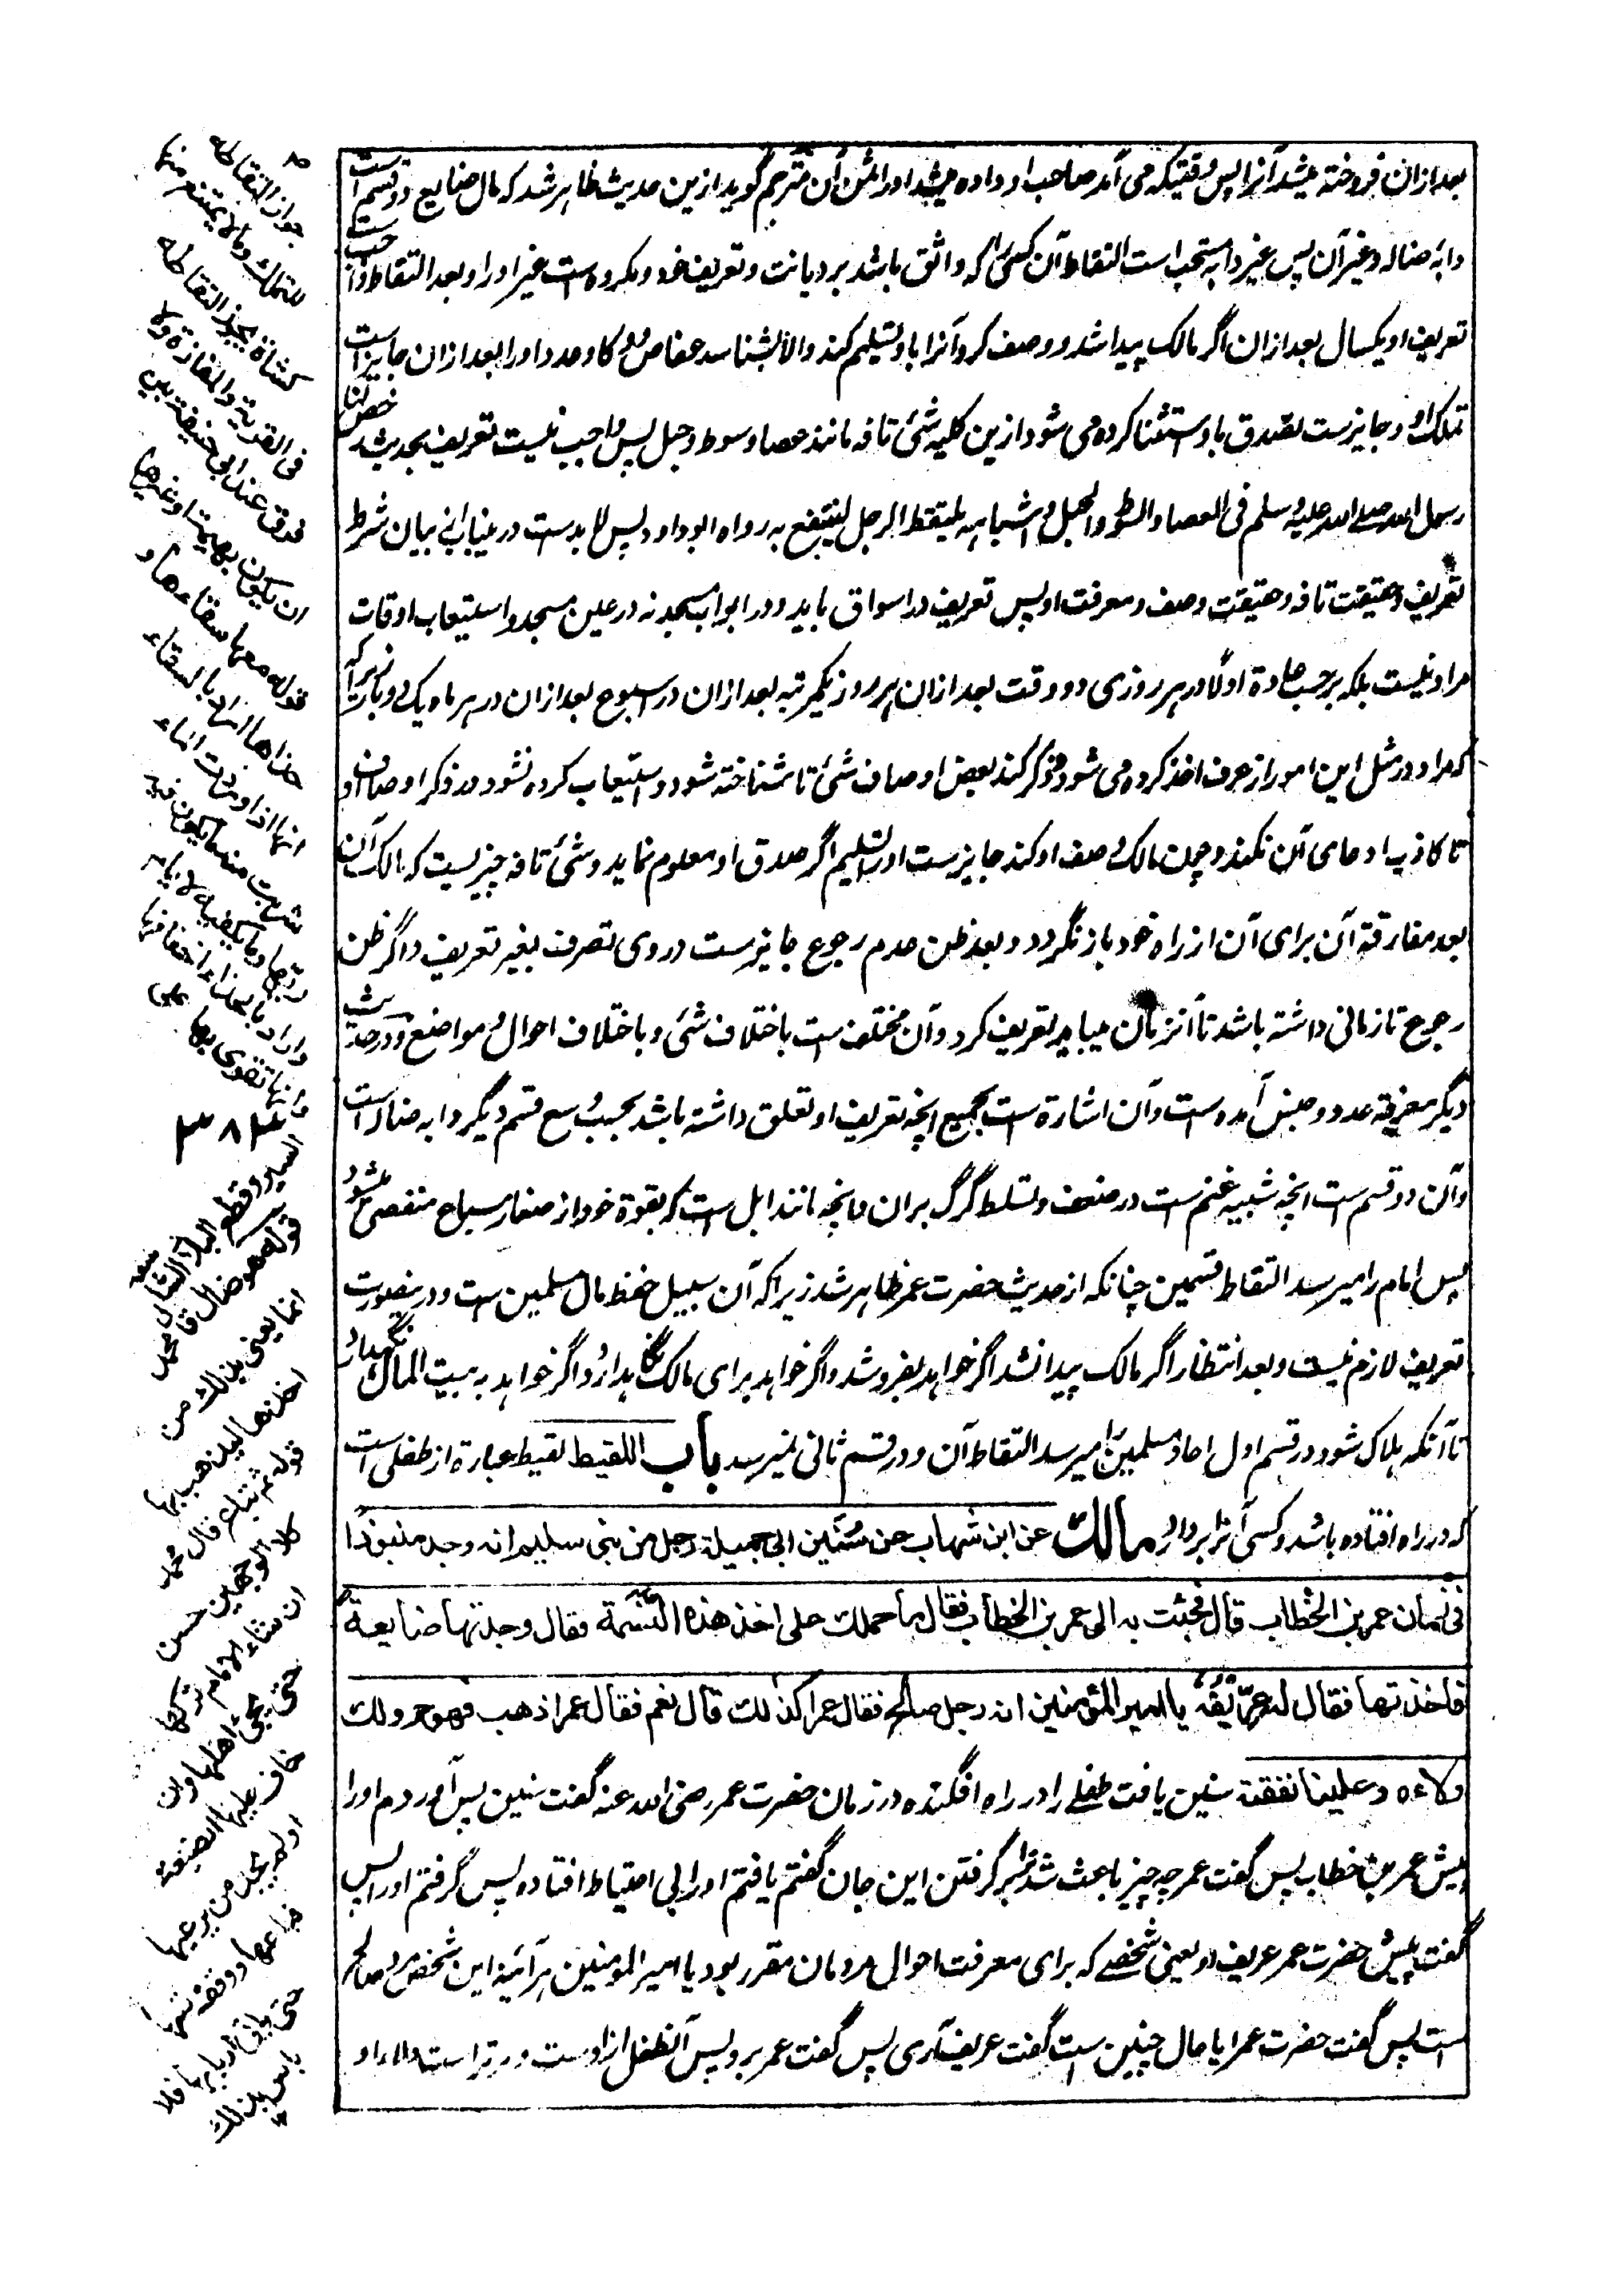 بعد ازان فروخته میشد آنرا پس وقتیکه می آمد صاحب او داده میشد او را ثمن آن مترجم گوید ازین حدیث ظاهر شد که مال ضایع دو قسم است
دابهٔ ضاله و غیر آن پس غیر دابه مستحب است التقاط آن کسی را که واثق باشد بر دیانت و تعریف خود و مکروه است غیر او را و بعد التقاط واجب است
تعریف او یکسال بعد ازان اگر مالک پیدا شد و وصف کرد آنرا باو تسلیم کند والا بشناسد عفاص و وکا و عدد او را بعد ازان جایز است
تملک او و جایز ست تصدق باو و استثنا کرده می شود ازین کلیه شئ تافه مانند عصا و سوط و حبل پس واجب نیست تعریف بحدیث رخص لنا
رسول الله صلی الله علیه وسلم فی العصا والسوط والحبل واشباهه یلتقط الرجل لینتفع به رواه ابو داود پس لابدست درینباب از بیان شرط
تعریف و حقیقت تافه و حقیقت وصف و معرفت او پس تعریف در اسواق باید و در ابواب مسجد نه در عین مسجد و استیعاب اوقات
مراد نیست بلکه بر حسب عادة اولا در هر روزی دو وقت بعد ازان هر روز یکمرتبه بعد ازان در اسبوع بعد ازان در هر ماه یک دو بار زیراکه
که مراد در مثل این امور از عرف اخذ کرده می شود و ذکر کند بعض اوصاف شئ تا شناخته شود و استیعاب کرده نشود در ذکر اوصاف او
تا کاذب ادعای آن نکند و چون مالک وصف او کند جایز ست او را تسلیم اگر صدق او معلوم نماید و شئ تافه چیزیست که مالک آن
بعد مفارقة آن برای آن از راه خود باز نگردد و بعد ظن عدم رجوع جایز ست در وی تصرف بغیر تعریف و اگر ظن
رجوع تا زمانی داشته باشد تا آنزمان میباید تعریف کرد و آن مختلف ست باختلاف شئ و باختلاف احوال و مواضع و در حدیث
دیگر معرفة عدد و جنس آمده ست و آن اشارة ست بجمیع آنچه تعریف او تعلق داشته باشد بحسب وسع قسم دیگر دابه ضاله است
و آن دو قسم ست آنچه شبیه غنم ست در ضعف و تسلط گرگ بران و آنچه مانند ابل ست که بقوة خود از صغار سباع متفصی میشود
پس امام را میرسد التقاط قسمین چنانکه از حدیث حضرت عمر ظاهر شد زیرا که آن سبیل حفظ مال مسلمین ست و درینصورت
تعریف لازم نیست و بعد انتظار اگر مالک پیدا نشد اگر خواهد بفروشد و اگر خواهد برای مالک نگاهدارد و اگر خواهد به بیت المال نگهدارد
تا آنکه هلاک شود و در قسم اول احاد مسلمین را میرسد التقاط آن و در قسم ثانی نمیرسد باب اللقیط لقیط عبارة از طفلی است
که در راه افتاده باشد و کسی آنرا بردارد مالك عن ابن شهاب عن سُنَين ابی جمیلة رجل من بنی سلیم انه وجد منبوذًا
فی زمان عمر بن الخطاب قال فجئت به الی عمر بن الخطاب فقال ما حملك علی اخذ هذه النسمة فقال وجدتها ضایعة
فاخذتها فقال له عریفه یا امیر المؤمنین انه رجل صالح فقال عمر اکذلك قال نعم فقال عمر اذهب فهو حر ولك
ولاءه وعلینا نفقته سنین یافت طفلی را در راه افگنده در زمان حضرت عمر رضی الله عنه گفت سنین پس آوردم او را
پیش عمر بن خطاب پس گفت عمر چه چیز باعث شد ترا بر گرفتن این جان گفتم یافتم او را بی احتیاط افتاده پس گرفتم او را پس
گفت پیش حضرت عمر عریف او یعنی شخصے که برای معرفت احوال مردمان مقرر بود یا امیر المؤمنین هر آئینه این شخص مرد صالح
است پس گفت حضرت عمر ایا حال چنین است گفت عریف آری پس گفت عمر برو پس آنطفل ازاد ست و ترا است ولاء او
جواز التقاطه
للتملك وما لا یمتنع منها
کشاة یجوز التقاطه
فی القریة والمفازة ولا
فرق عند ابی حنیفة بین
ان یکون بهیمة او غیرها
قوله معها سقاءها و
حذاءها اراد بالسقاء
انها اذا وردت الماء
شربت منه ما یکون فیه
ریها
واراد بالحذاء اخفافها
فانها تقوی بها علی
السیر وقطع البلاد الشاسعة
قوله فهو ضال قال محمد
انما یعنی بذلك من
اخذها لیذهب بها
قوله ثم تباع قال محمد
کلا الوجهین حسن
ان شاء الامام ترکها
حتی یجئ اهلها وان
خاف علیها الضیعة
او لم یجد من یرعیها
فباعها ووقف ثمنها
حتی یاتی اربابها فلا
باس بذلك